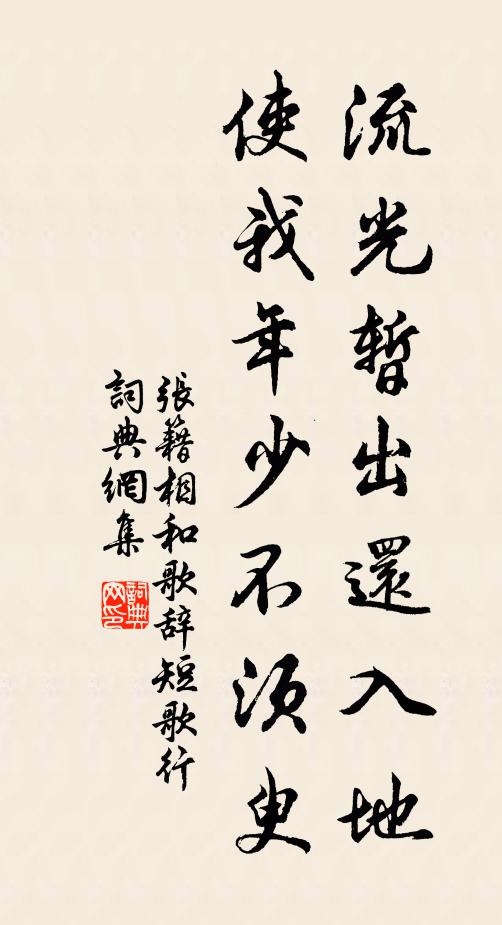 流光暫出還入地
使我年少不須臾
張籍相和歌辞短歌行
詞典網集
詞典网印